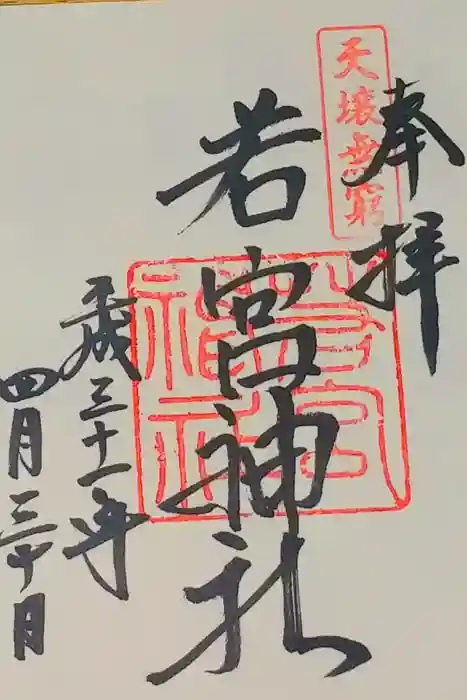 天壌無窮
奉拝
若宮神社
若宮神社
平成三十一年
四月三十日